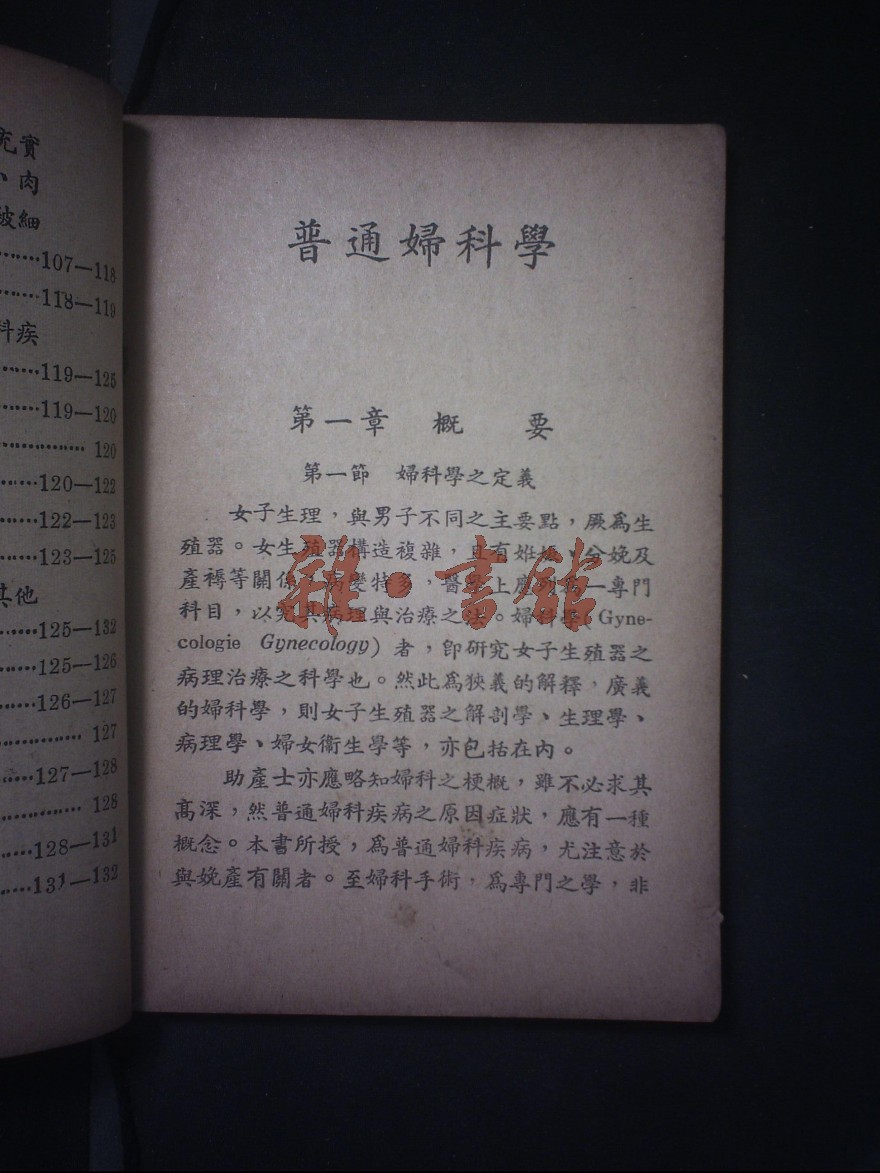 充實
、肉
皮細
107—118
118—119
科疾
119—125
119—120
120
120—122
122—123
123—125
其他
125—132
125—126
126—127
127
127—128
128
128—131
131—132
普通婦科學
第一章 概 要
第一節 婦科學之定義
女子生理，與男子不同之主要點，厥爲生
殖器。女生殖器構造複雜，且有姙娠、分娩及
產褥等關係，病變特多，醫學上應列爲一專門
科目，以究其病理與治療之法。婦科學(Gyne-
cologie Gynecology)者，卽研究女子生殖器之
病理治療之科學也。然此爲狹義的解釋，廣義
的婦科學，則女子生殖器之解剖學、生理學、
病理學、婦女衞生學等，亦包括在內。
助產士亦應略知婦科之梗概，雖不必求其
高深，然普通婦科疾病之原因症狀，應有一種
概念。本書所授，爲普通婦科疾病，尤注意於
與娩產有關者。至婦科手術，爲專門之學，非
雜·書館